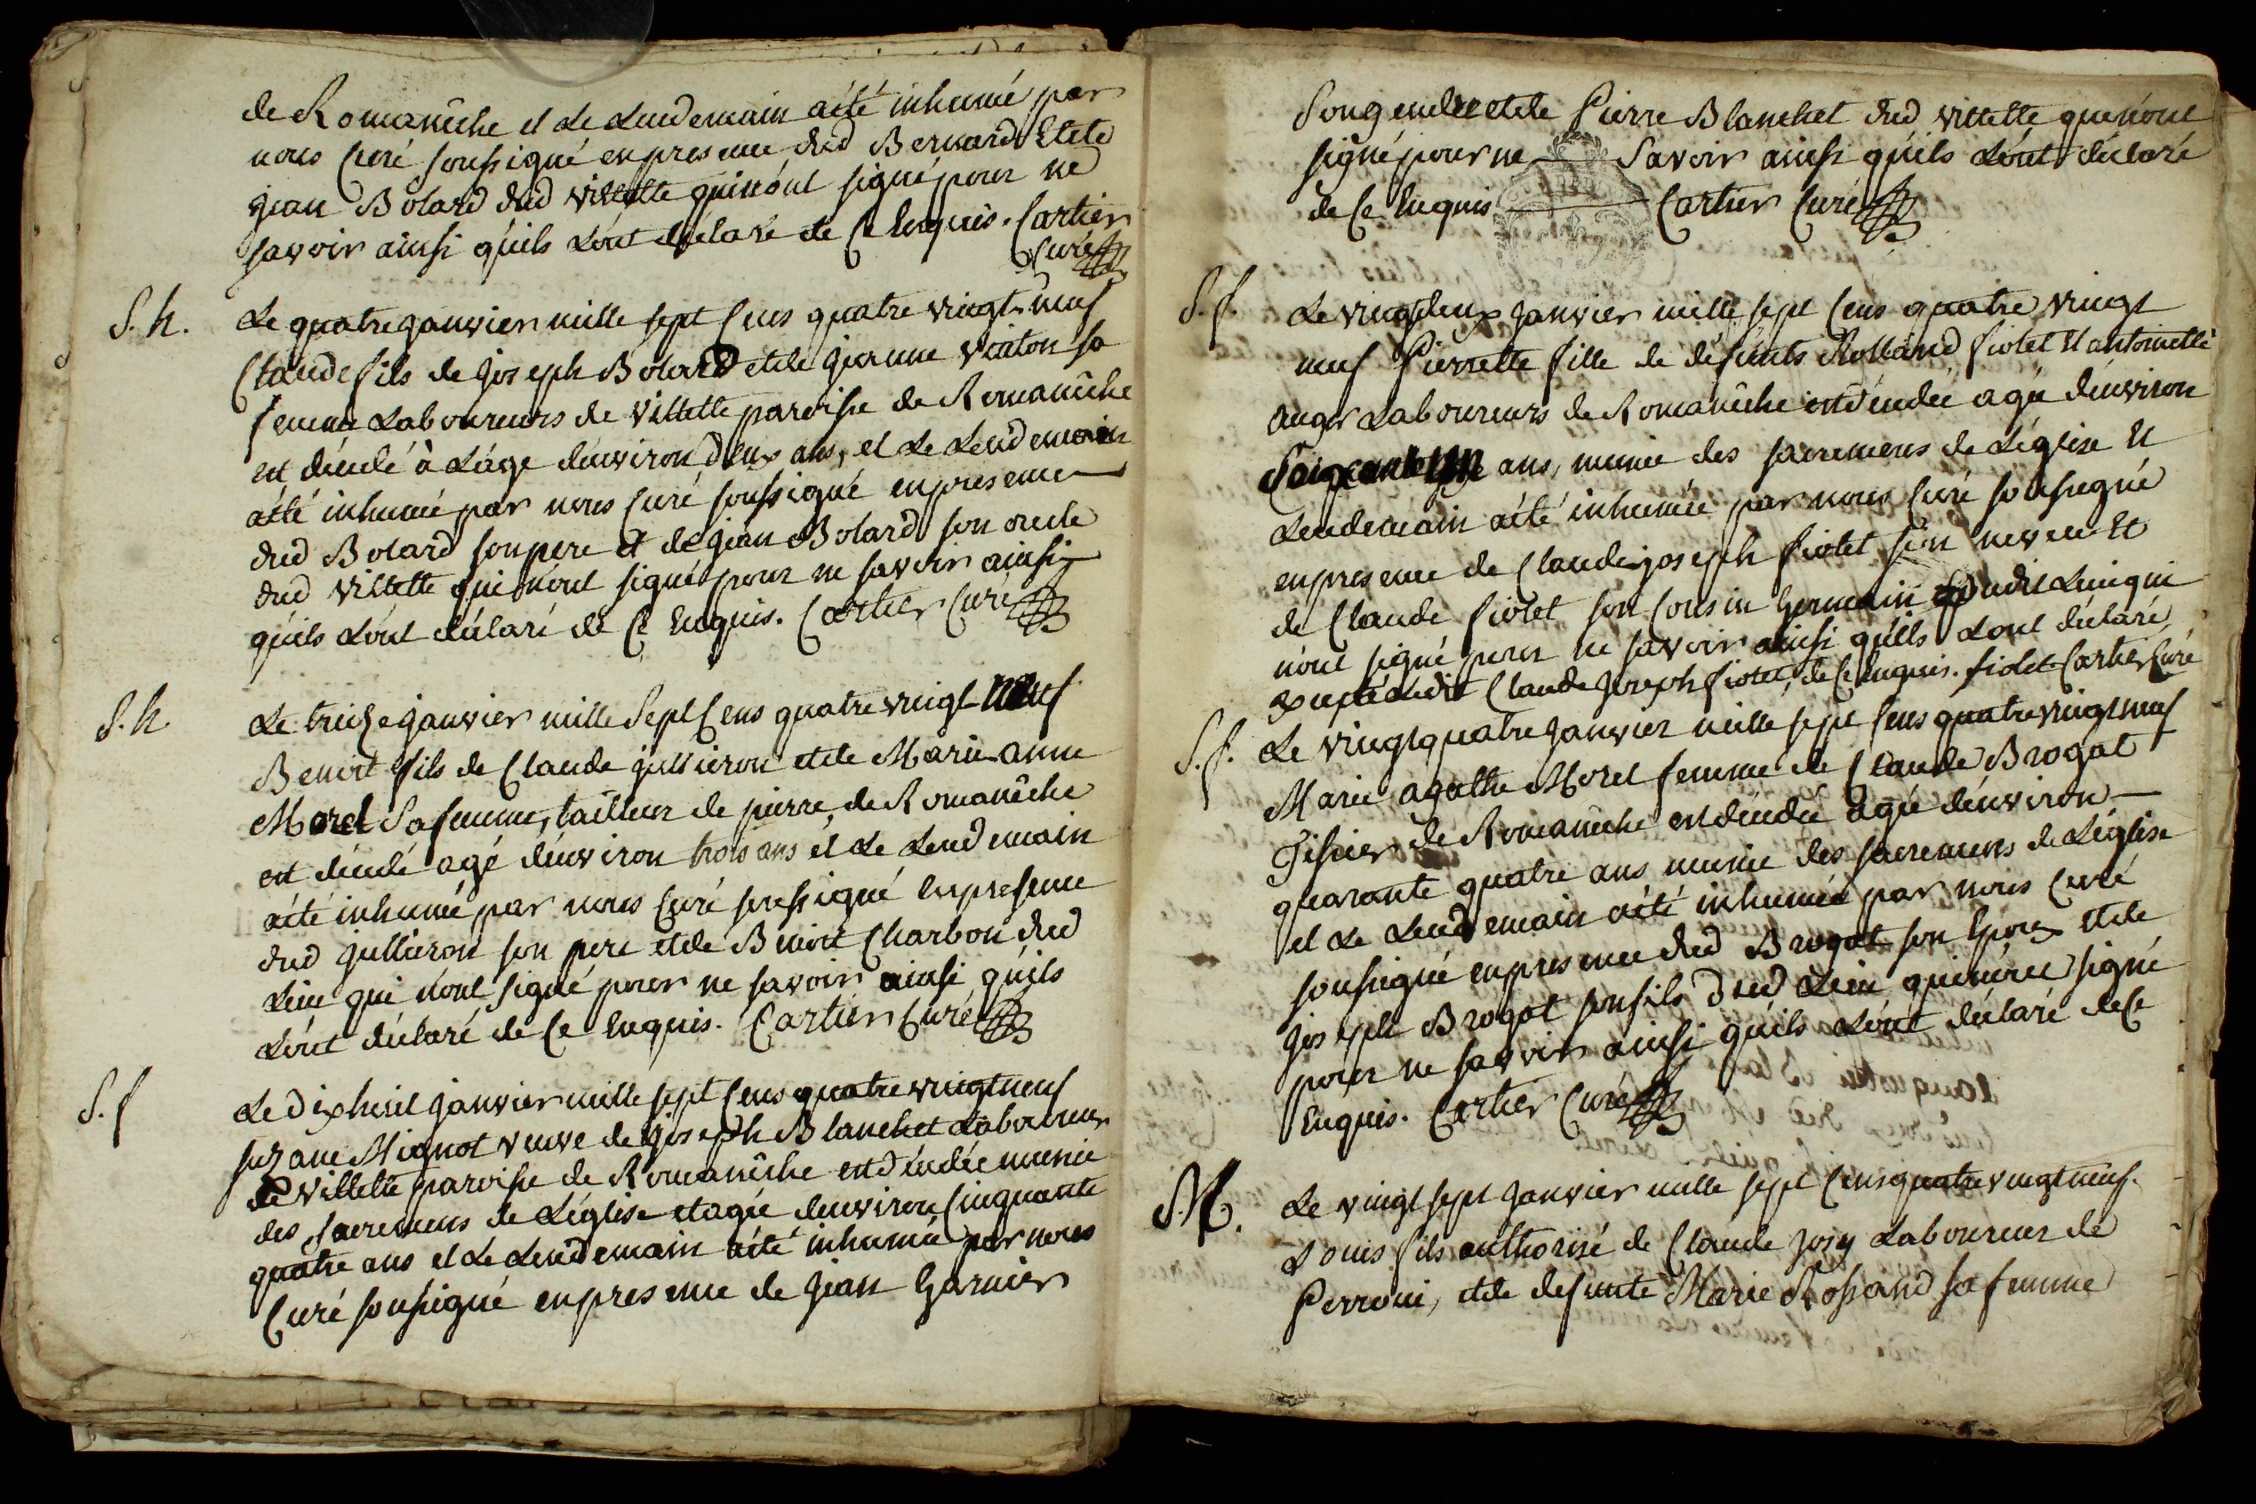 de Romanêche et Le Lendemain aété inhumé par
nous Curé soussigné enpresence dud Bernard Etde
jean Bolard dud villette quinónt signé pour ne
savoir ainsi quíls Lónt déclaré de Ce Enquis. Cartier
Curé
S. h. Le quatre janvier mille sept Cens quatre vingt-neuf
Claude fils de joseph Bolard etde jeanne voiton sa
femme Laboureurs de villette paroisse de Romanêche
est décédé à Láge dénviron deux ans, et Le Lendemain
aété inhumé par nous Curé soussigné enpresence
dud Bolard sonpere et de jean Bolard son oncle
dud villette qui nónt signé pour ne savoir ainsi
quíls Lónt déclaré de Ce Enquis. Cartier Curé
S. h. Le treize janvier mille Sept Cens quatre vingt-neuf
Benoit fils de Claude jullieron etde Marie-anne
Morel Safemme, tailleur de pierre, de Romanêche
est décédé agé dénviron trois ans et Le Lendemain
aété inhumé par nous Curé soussigné Enpresence
dud jullieron son pere etde Benoit Charbon dud
Lieu qui nónt signé pour ne savoir ainsi quíls
Lónt déclaré de Ce Enquis. Cartier Curé
S. f Le dixhuit janvier mille sept Cens quatre vingtneuf
suzane Mignot veuve de joseph Blanchet Laboureur
de villette paroisse de Romanêche estdécédée munie
des sacremens de Léglise etagée denviron Cinquante
quatre ans et Le Lendemain aété inhumée par nous
Curé soussigné enpresence de jean Garnier
Songendre etde Pierre Blanchet dud villette quinónt
signé pour ne Savoir ainsi quíls Lónt déclaré
de Ce Enquis Cartier Curé
S. f. Le vingtdeux janvier mille sept Cens quatre vingt
neuf Pierrette fille de défunts Rolland fiolet Et antoinette
auger Laboureurs de Romanêche estdécédée agée dénviron
Soixante ans, munie des sacremens de Léglise Et
Lendemain aété inhumée par nous Curé soussigné
enpresence de Claude joseph fiolet son neveu Et
de Claude fiolet son Cousin Germain dudit Lieu qui
nónt signé pour ne savoir ainsi quílls Lont déclaré
excepté Ledit Claude joseph fiolet, de Ce Enquis. fiolet Cartier Curé
S. f. Le vingtquatre janvier mille sept Cens quatre vingtneuf
Marie agathe Morel femme de Claude Brogat
Tissier de Romanêche estdécédée agée dénviron
quarante quatre ans munie des sacremens de Léglise
et Le Lendemain aété inhumée par nous Curé
soussigné enpresence dud Brogat son Epoux Etde
joseph Brogat sonfils dud Lieu quinónt signé
pour ne savoir ainsi quíls Lónt déclaré de Ce
Enquis. Cartier Curé
S. M. Le vingt sept janvier mille sept Cens quatre vingt neuf.
Louis fils authorisé de Claude Laboureur de
Perroui, etde defunte Marie sa femme